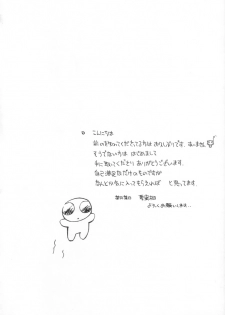 こんにちは
前のを知ってくださってる方は おひさしぶりです、すいません
そうでない方は はじめまして
手に取ってくださり ありがとうございます。
自己満足なだけのものですが
なんとか気に入ってもらえれば と思ってます。
よろしくお願いします…